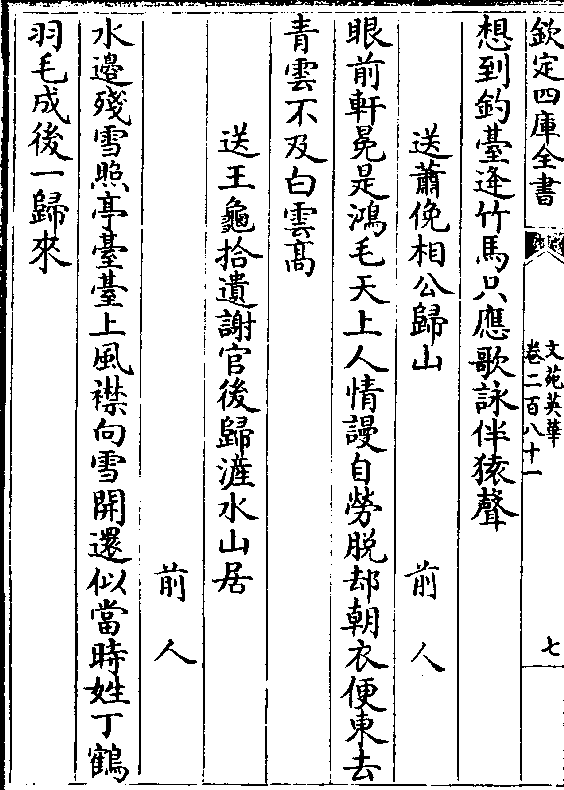 欽定四庫全書
文苑英華
卷二百八十一
七
想到釣臺逢竹馬只應歌詠伴猿聲
送蕭俛相公歸山
前人
眼前軒冕是鴻毛天上人情謾自勞脱却朝衣便東去
青雲不及白雲髙
送王龜拾遺謝官後歸滻水山居
前人
水邉殘雪照亭臺臺上風襟向雪開還似當時姓丁鶴
羽毛成後一歸來